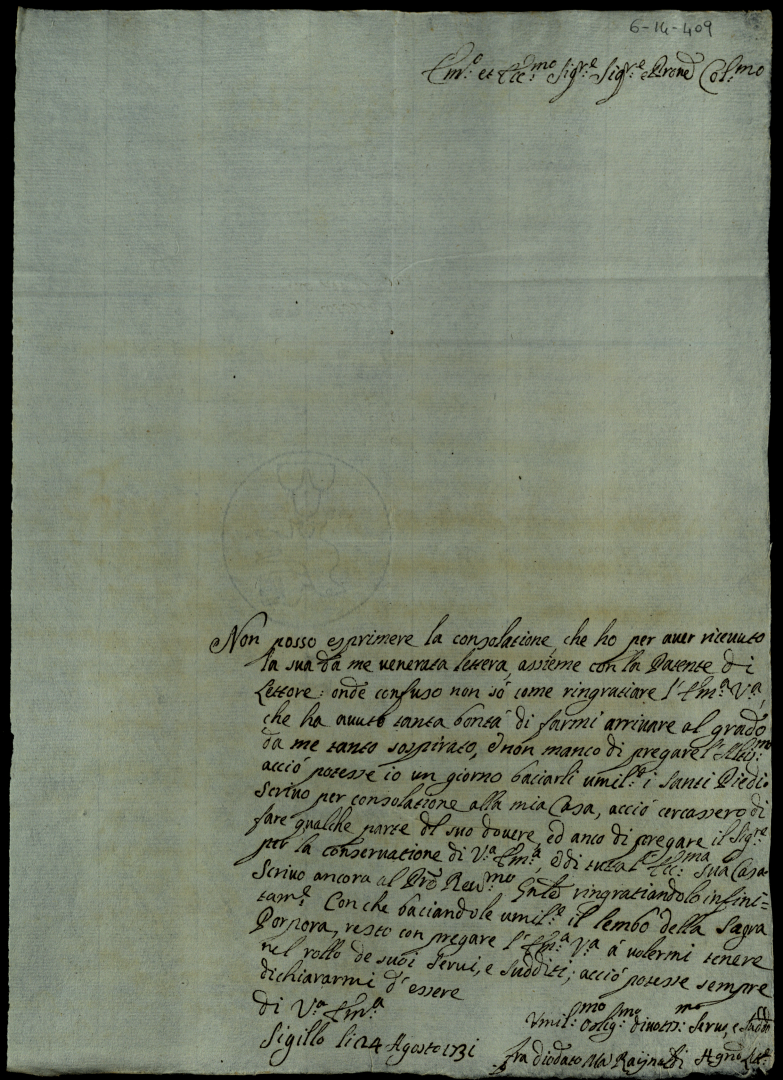 6-14-409
Em:o et Ecc:mo Sig:re Sig:re e Prone Col:mo
Non posso esprimere la consolatione, che ho per aver ricevuto
la sua da me venerata lettera, assieme con la Patente di
Lettore: onde confuso non só come ringratiare l'Em:a V:a,
che ha avuto tanta bontá di farmi arrivare al grado
da me tanto sospirato, e non manco di pregare l'Altis:mo
acció potesse io un giorno baciarli umil:e i santi Piedi.
Scrivo per consolatione alla mia Casa, acció cercassero di
fare qualche parte del suo dovere, ed anco di pregare il Sig:re
per la conservatione di V:a Em:a, e di tutta l'Ecc:ma sua Casa
Scrivo ancora al Pre Rev:mo Gnle ringratiandolo infini-
tam:e Con che baciandole umil:e il lembo della Sagra
Porpora, resto con pregare l'Em:a V:a á volermi tenere
nel rollo de suoi servi, e sudditi; acció potesse sempre
dichiararmi d'essere
Di V:a Em:a
Umil:mo Oblig:mo divotis:mo Servo, e Sudd:
Sigillo li 24 Agosto 1731
fra diodato Ma Raynaldi Agno Lett: